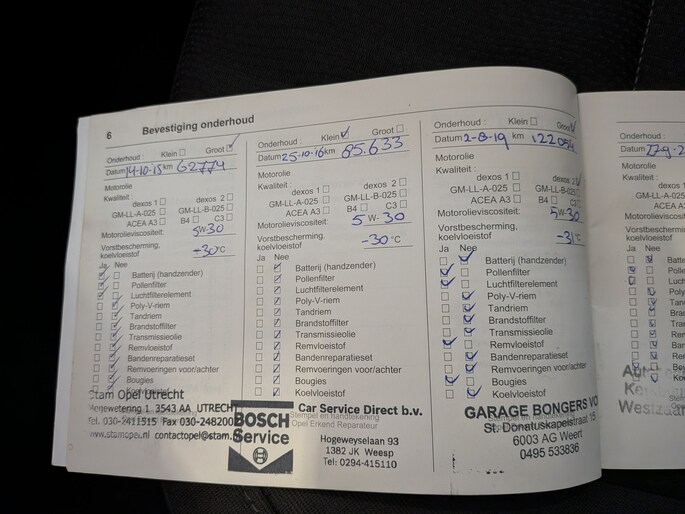 6
Bevestiging onderhoud
Onderhoud : Klein Groot
Datum 14-10-15 km 62774
Motorolie
Kwaliteit :
dexos 1 dexos 2
GM-LL-A-025 GM-LL-B-025
ACEA A3 B4 C3
Motorolieviscositeit: 5W-30
Vorstbescherming,
koelvloeistof -30°C
Ja Nee
Batterij (handzender)
Pollenfilter
Luchtfilterelement
Poly-V-riem
Tandriem
Brandstoffilter
Transmissieolie
Remvloeistof
Bandenreparatieset
Remvoeringen voor/achter
Bougies
Koelvloeistof
Stam Opel Utrecht
Meijewetering 1 3543 AA UTRECHT
Tel. 030-2411515 Fax 030-248200
www.stamopel.nl contactopel@stam.nl
Onderhoud : Klein Groot
Datum 25-10-16 km 85.633
Motorolie
Kwaliteit :
dexos 1 dexos 2
GM-LL-A-025 GM-LL-B-025
ACEA A3 B4 C3
Motorolieviscositeit: 5W-30
Vorstbescherming,
koelvloeistof -30°C
Ja Nee
Batterij (handzender)
Pollenfilter
Luchtfilterelement
Poly-V-riem
Tandriem
Brandstoffilter
Transmissieolie
Remvloeistof
Bandenreparatieset
Remvoeringen voor/achter
Bougies
Koelvloeistof
Stempel en handtekening
Opel Erkend Reparateur
BOSCH
Service
Car Service Direct b.v.
Hogeweyselaan 93
1382 JK Weesp
Tel: 0294-415110
Onderhoud : Klein Groot
Datum 2-8-19 km
Motorolie
Kwaliteit :
dexos 1 dexos 2
GM-LL-A-025 GM-LL-B-025
ACEA A3 B4 C3
Motorolieviscositeit: 5W-30
Vorstbescherming,
koelvloeistof -31°C
Ja Nee
Batterij (handzender)
Pollenfilter
Luchtfilterelement
Poly-V-riem
Tandriem
Brandstoffilter
Transmissieolie
Remvloeistof
Bandenreparatieset
Remvoeringen voor/achter
Bougies
Koelvloeistof
GARAGE BONGERS
St. Donatuskapelstraat 15
6003 AG Weert
0495 533836
Onderhoud
Datum
Motorolie
Kwaliteit :
GM-LL-A
Motorolie
Vorstbesch
koelvloeist
Ja Nee